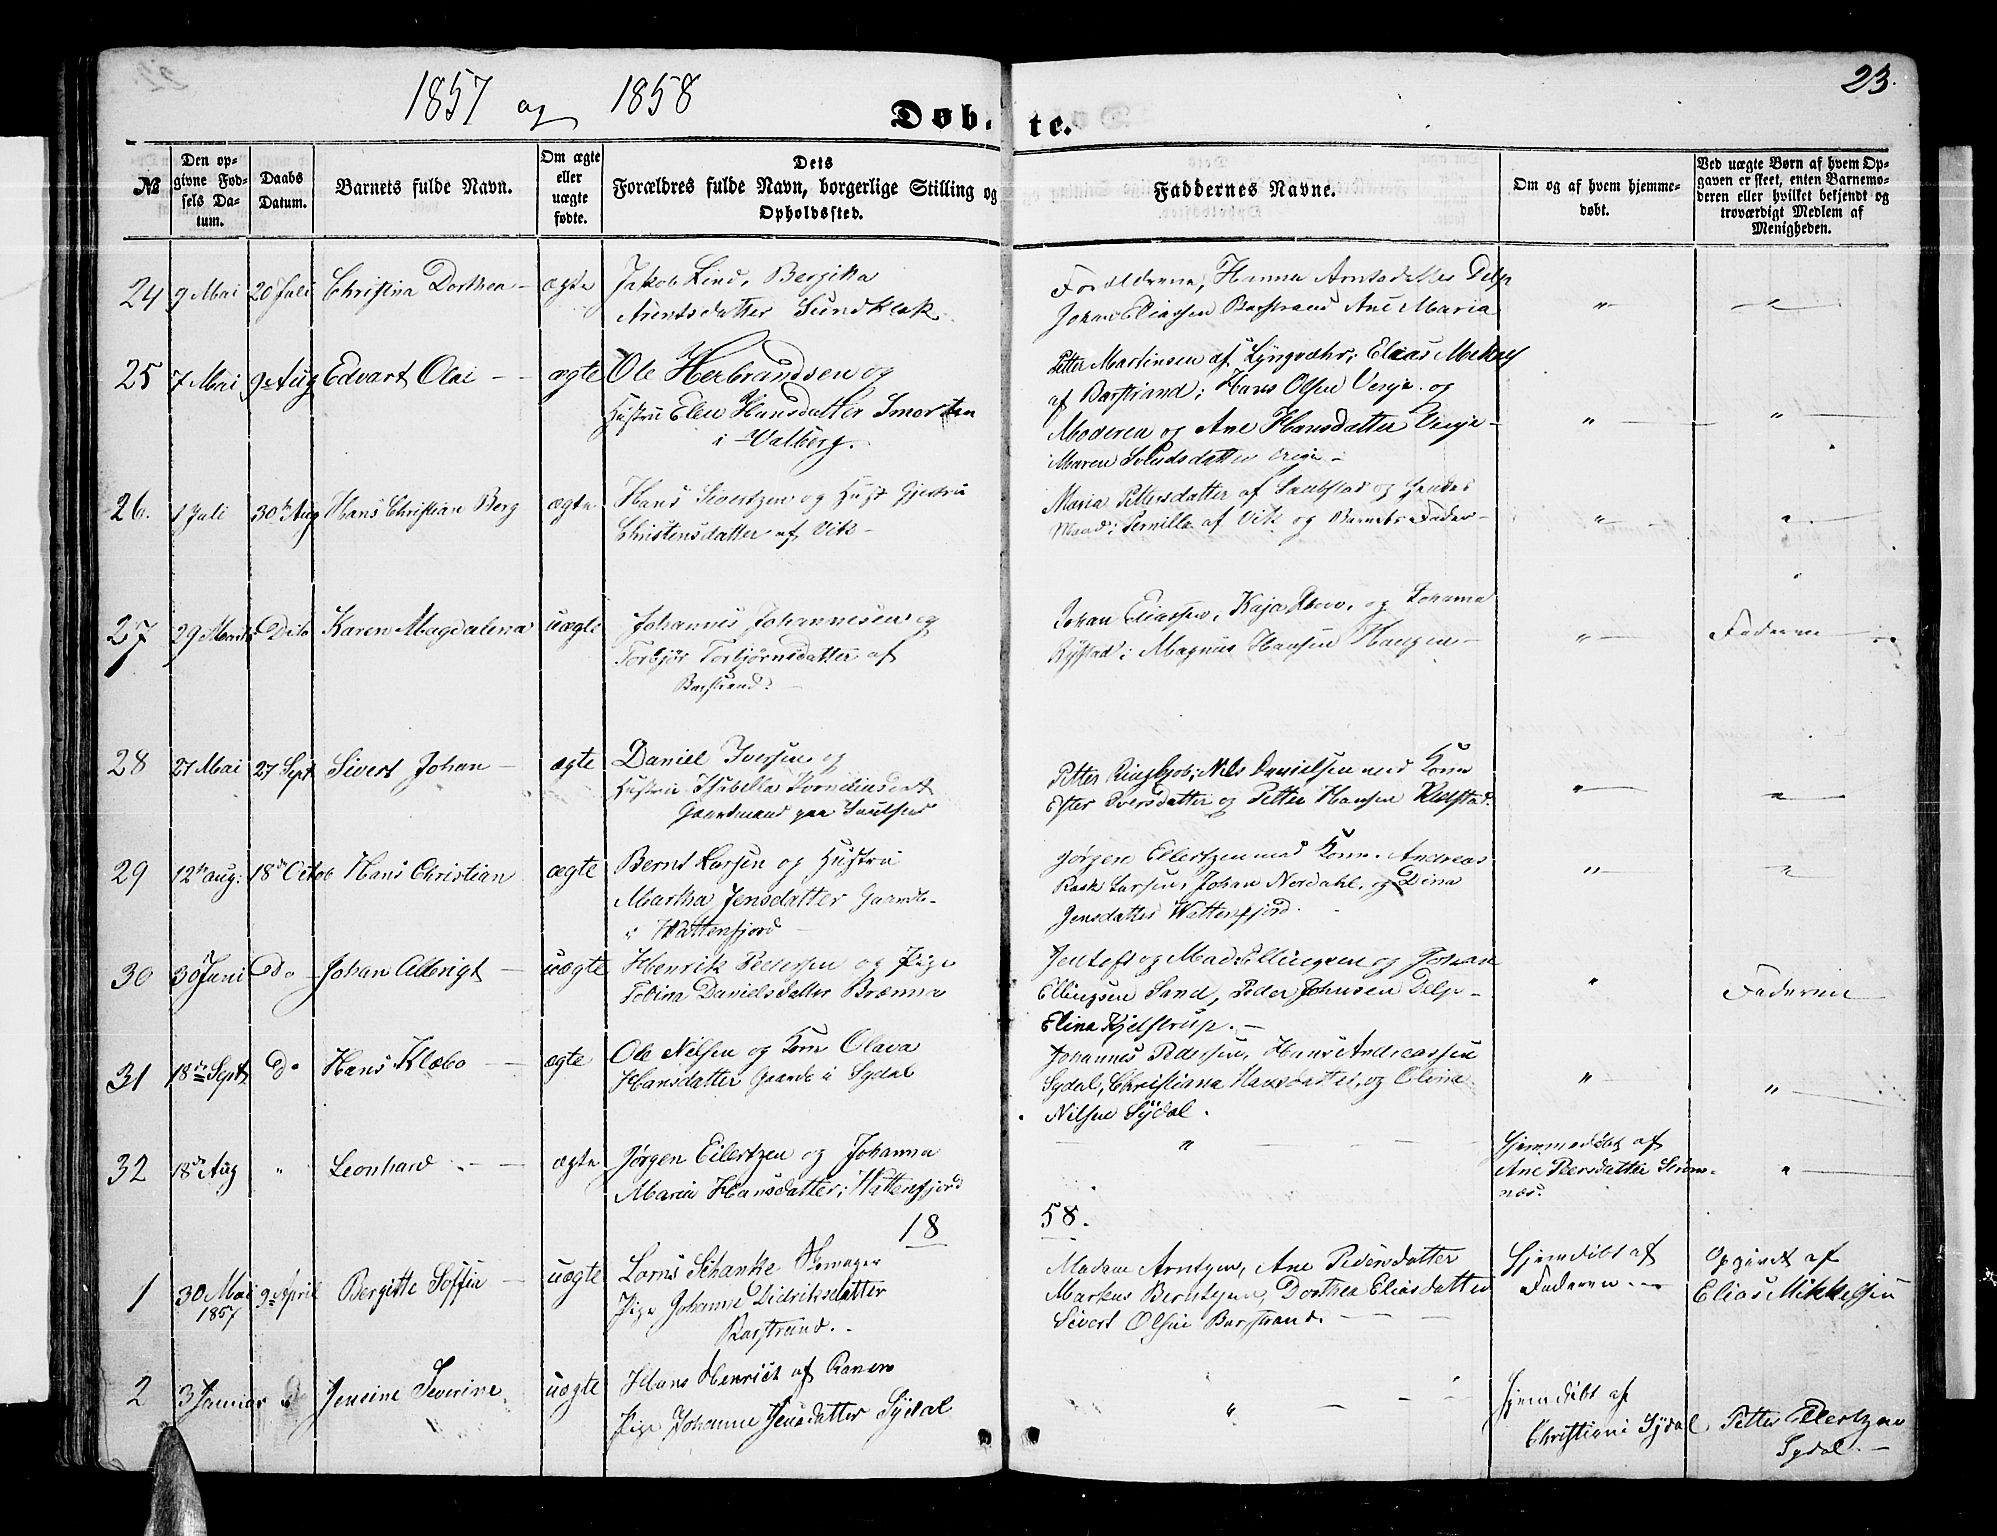 1857 og 1858
Døbte.
23.
№
Den opgivne Fødsels Datum.
Daabs Datum.
Barnets fulde Navn.
Om ægte eller uægte fødte.
Dets Forældres fulde Navn, borgerlige Stilling og Opholdssted.
Faddernes Navne.
Om og af hvem hjemmedøbt.
Ved uægte Børn af hvem Opgaven er skeet, enten Barnemoderen eller hvilket bekjendt og troværdigt Medlem af Menigheden.
24 9 Mai 20 Juli Christina Dorthea ægte
Jakob Lind, Bergitta
Arentsdatter Sundklak
Forældrene, Hanna Arntsdatter Delp
Johan Eliassen Barstrand Ane Maria
25 7 Mai 9 Aug Edvart Olai ægte
Ole Herbrandsen og
Hustru Elen Hansdatter Smorten
i Valberg.
Petter Martinsen af Lyngvæhr; Elias Mikkels
af Barstrand; Hans Olsen Verje og
Moderen og Ane Hansdatter Verje
Maren Svendsdatter
26. 1 Juli 30 Aug Hans Christian Borg ægte
Hans Sivertzen og Hust
Christensdatter af Vik
Maria Pettersdatter af Sandstad og
Pernille af Vik og Barnets Fader
27 29 Marts Dito Karen Magdalena uægte
Johannes Johannesen og
Torbjør Torbjørnsdatter af
Barstrand.
Johan Eliassen, Kaja og Johanna
Rystad; Magnus Hansen Haugen
Faderen
28 27 Mai 27 Sept Sivert Johan ægte
Daniel Iversen og
Hustru Isabella Korneliusdat
Gaardmand paa
Petter Ringbjob; Nils Danielsen med Kone
Ester Iversdatter og Petter Hansen
29 12te aug: 18de Octob Hans Christian ægte
Bernt Larsen og Hustru
Martha Jensdatter Gaardb.
i Wattenfjord
Jørgen Eilertzen med Kone. Andreas
Rask Larsen, Johan Nordahl, og Dina
Jensdatter Wattenfjord.
30 30 Juni Do Johan Albrigt uægte
Henrik Pedersen og Pige
Tobina Danielsdatter Brænna
Jentoft og Mads Ellingsen og Johan
Ellingsen Sand, Peder Johnsen Delp
Elina Kjelstrup.
Faderen
31 18de Sept Do Hans Klæbo ægte
Ole Nilsen og Kone Olava
Hansdatter Gaardb i Sydal
Johannes Pedersen, Hans Andreassen
Sydal, Christiana Hansdatter, og Olina
Nilsen Sydal.
32 18de Aug " Leonhard ægte
Jørgen Eilertzen og Johanna
Maria Hansdatter, Wattenfjord
Hjemmedøbt af
Ane Peersdatter Strøm-
næs.
18 58.
1 30 Mai 1857 9 April Bergitte Soffia uægte
Lorns Schanke
Pige Johanne Didriksdatter
Barstrand.
Madam Arntzen, Ane Pedersdatter
Markus Berntzen, Dorthea Eliasdatter
Sivert Olsen Barstrand.
Hjemdøbt af
Faderen
Opgivet af
Elias Mikkelsen
2 3 Januar Jensine Severine uægte
Hans Henrict af Ranen
Pige Johanne Jensdatter Sydal
Hjemdøbt af
Christian Sydal
Petter Eilertzen
Sydal.